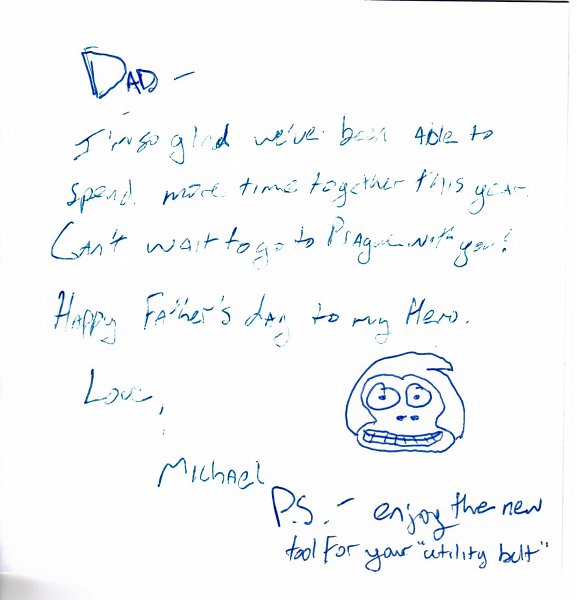 Dad –
I'm so glad we've been able to
spend more time together this year.
Can't wait to go to Prague with you!
Happy Father's day to my Hero.
Love,
Michael
P.S. – enjoy the new
tool for your "utility belt"